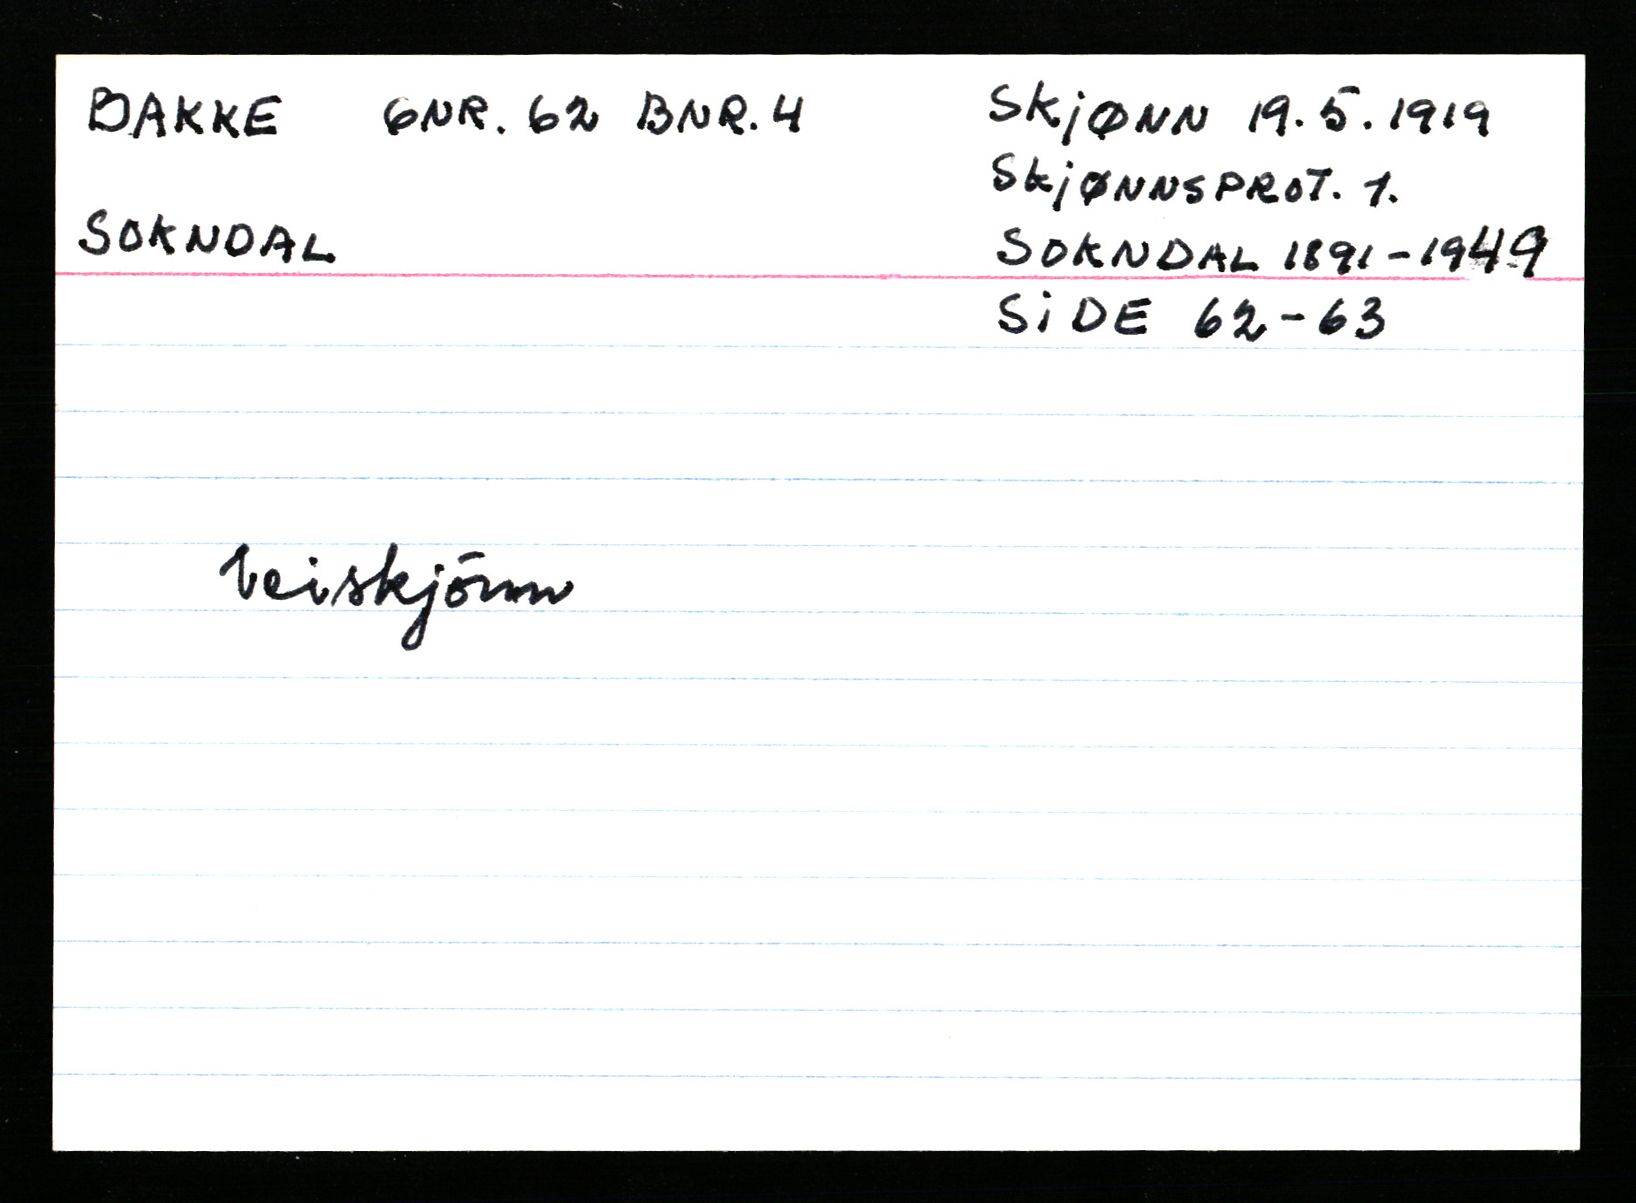 BAKKE GNR. 62 BNR. 4
SOKNDAL
SKJØNN 19.5.1919
SKJØNNSPROT. 1.
SOKNDAL 1891-1949
SIDE 62-63
Veiskjönn